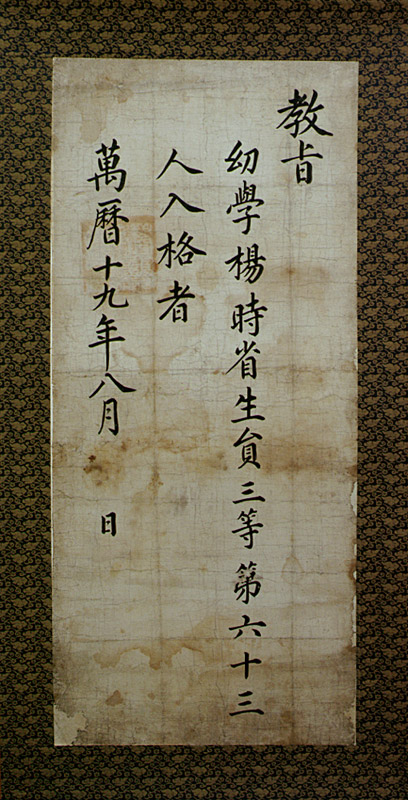 教旨
幼學楊時省生員三等第六十三
人入格者
萬曆十九年八月 日